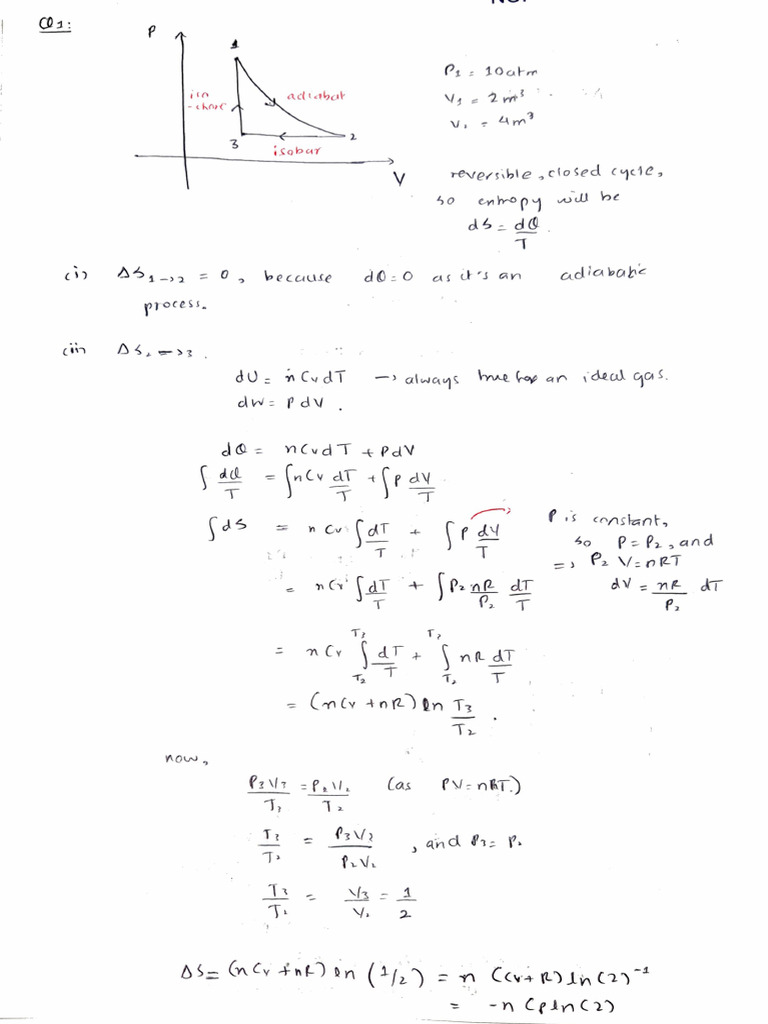 Q1:
P
1
adiabat
2
3
isobar
V
P₁ = 10atm
V₁ = 2m³
V₂ = 4m³
reversible, closed cycle,
so entropy will be
dS = dQ/T.
(i) ΔS₁→₂ = 0, because dQ=0 as it's an adiabatic
process.
(ii) ΔS₂→₃.
dU = nCvdT → always true for an ideal gas.
dW = PdV.
dQ = nCvdT + PdV
∫ dQ/T = ∫nCv dT/T + ∫P dV/T
∫dS = nCv ∫dT/T + ∫P dV/T
P is constant,
so P=P₂, and
=> P₂V=nRT
dV = nR/P₂ dT
= nCv ∫dT/T + ∫P₂ nR/P₂ dT/T
= nCv ∫_T₂^T₃ dT/T + ∫_T₂^T₃ nR dT/T
= (nCv + nR) ln T₃/T₂.
now,
P₃V₃/T₃ = P₂V₂/T₂ (as PV=nRT.)
T₃/T₂ = P₃V₃/P₂V₂, and P₃ = P₂
T₃/T₂ = V₃/V₂ = 1/2
ΔS = (nCv + nR) ln (1/2) = n (Cv+R) ln(2)⁻¹
= -nCp ln(2)